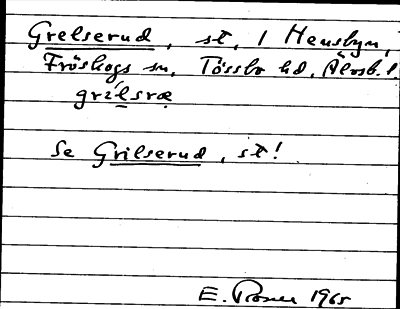 Grelserud, st, 1 Hensbyn,
Fröskogs sn, Tössbo hd, Älvsb. l.
grílsræ
Se Grilserud, st!
E. 1965